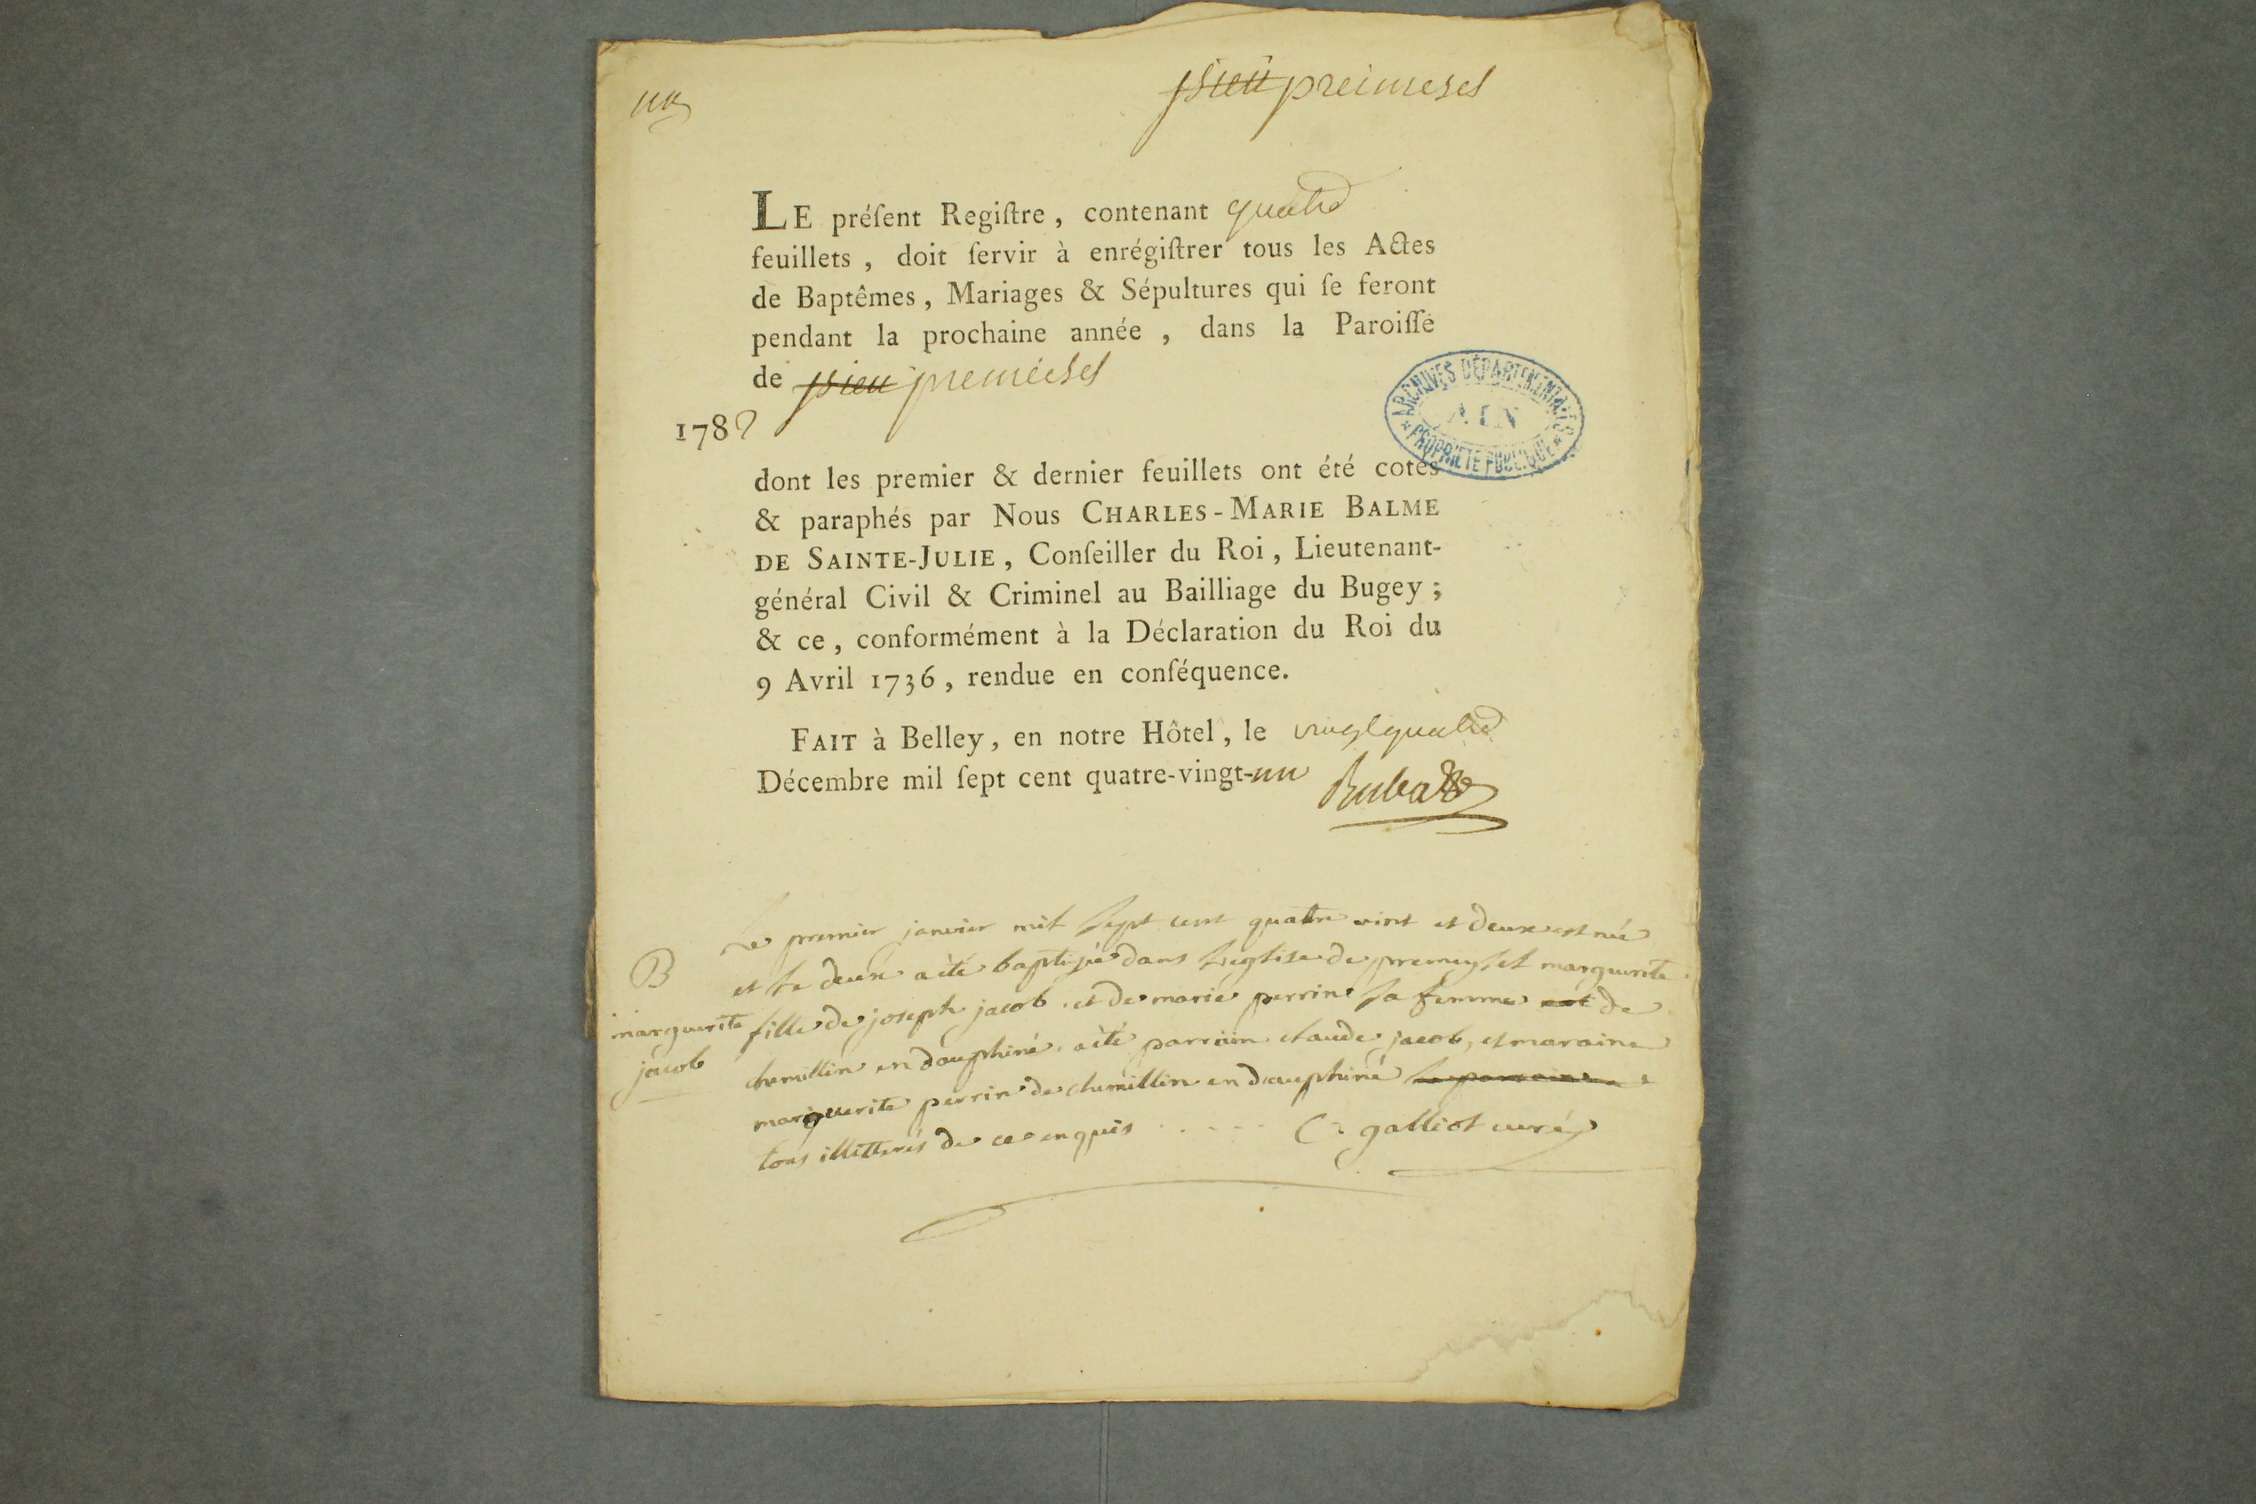 un
psieu preimesel
LE préſent Regiſtre, contenant quatre
feuillets, doit ſervir à enrégiſtrer tous les Actes
de Baptêmes, Mariages & Sépultures qui ſe feront
pendant la prochaine année, dans la Paroiſſe
de psieu premeisel
1782
ARCHIVES DÉPARTEMENTALES
AIN
PROPRIÉTÉ PUBLIQUE
dont les premier & dernier feuillets ont été cotés
& paraphés par Nous CHARLES-MARIE BALME
DE SAINTE-JULIE, Conſeiller du Roi, Lieutenant-
général Civil & Criminel au Bailliage du Bugey;
& ce, conformément à la Déclaration du Roi du
9 Avril 1736, rendue en conſéquence.
FAIT à Belley, en notre Hôtel, le vingt quatre
Décembre mil ſept cent quatre-vingt-un
B
marguerite
jacob
Le premier janvier mil sept cent quatre vint et deux est née
et le deux a été baptisée dans l'eglise de premeysel marguerite
fille de joseph jacob et de marie perrin sa femme de
chemillin en dauphiné. a été parrain claude jacob, et maraine
marguerite perrin de chemillin en dauphiné
tous illettrés de ce enquis C. galliot curé